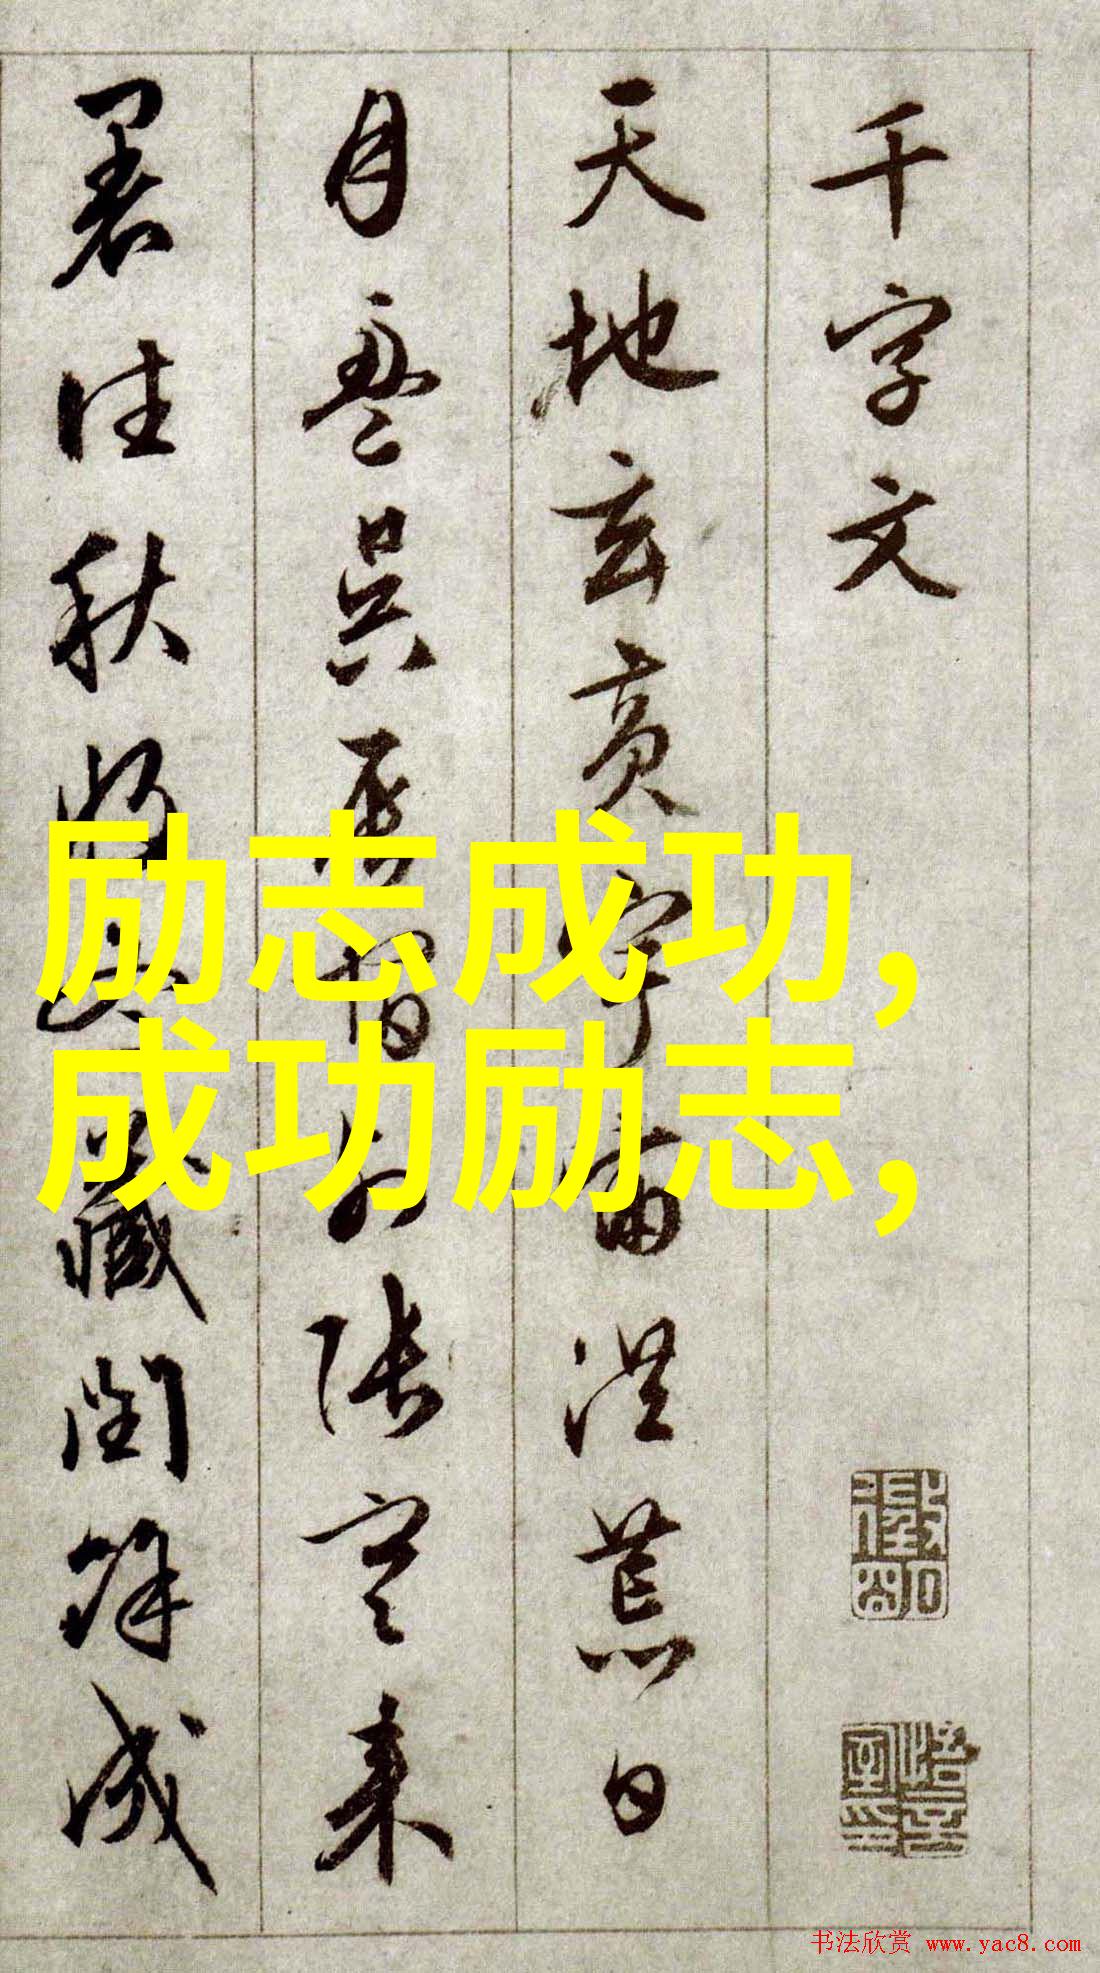 千字文
天地玄黄宇宙洪荒日
月盈昃辰宿列张寒来
暑往秋收冬藏闰余成
励志成功,
成功励志,
书法欣赏 www.yac8.com